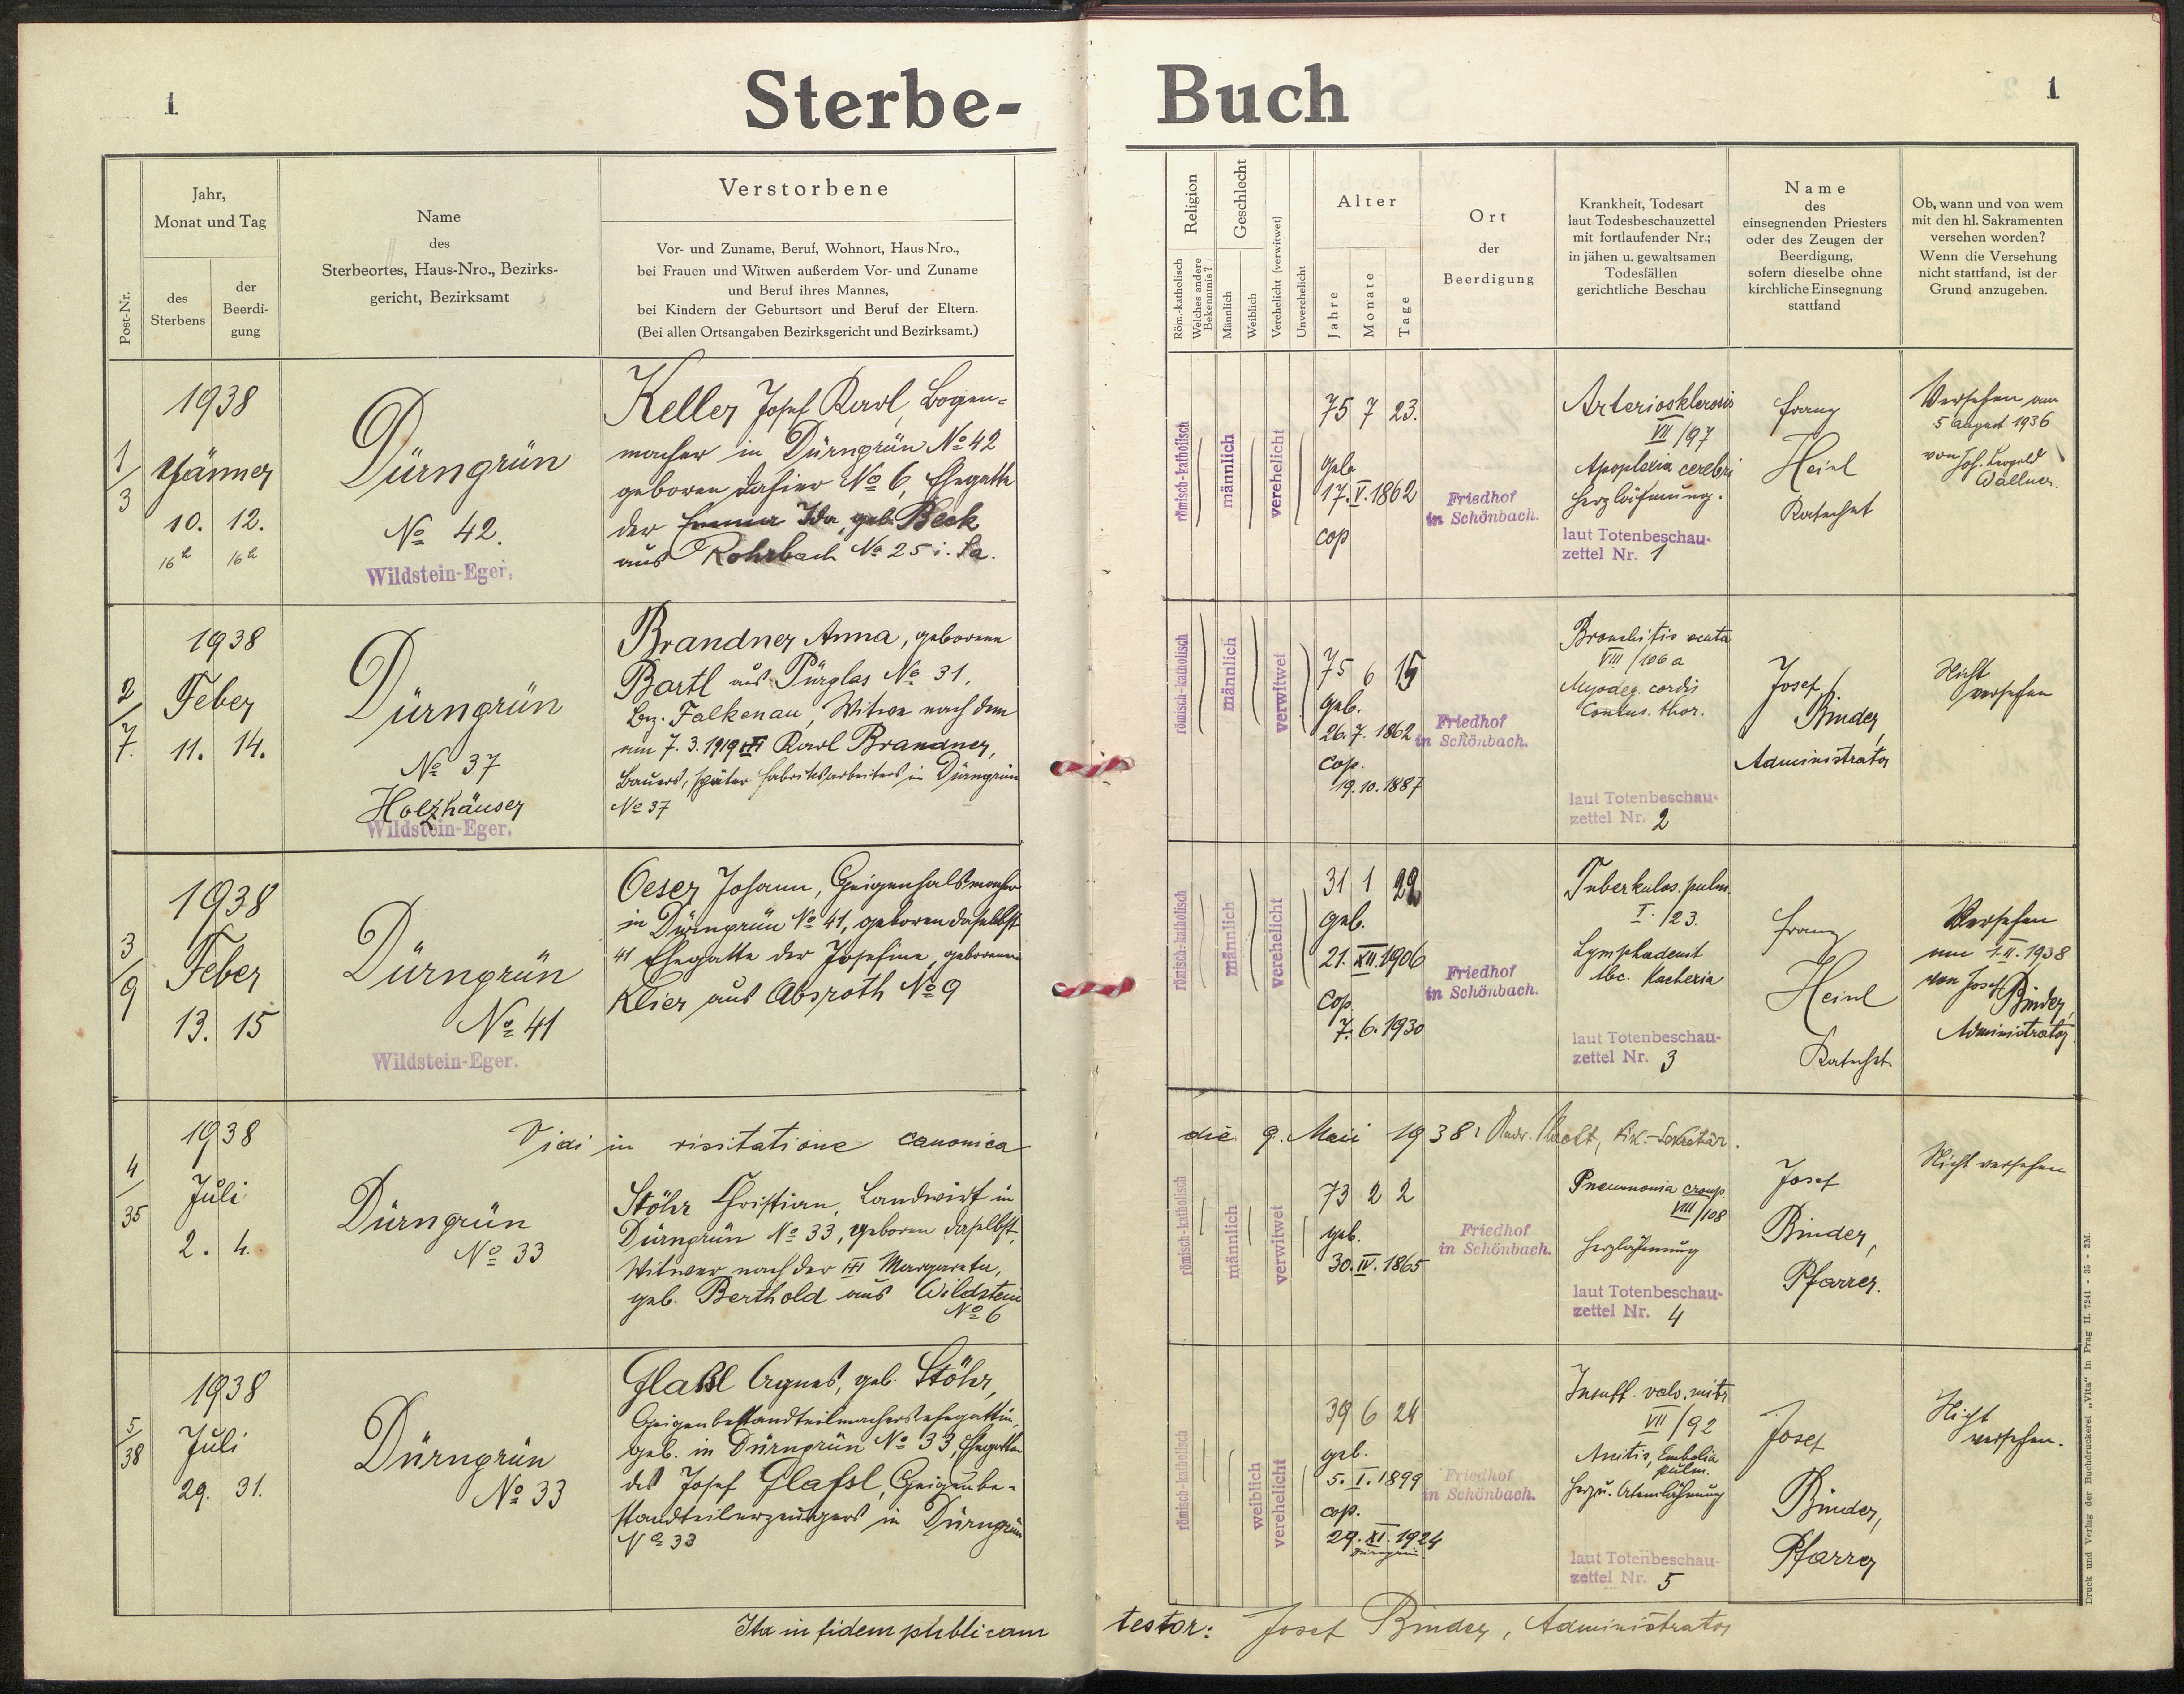 1
Sterbe-
Post-Nr.
Jahr,
Monat und Tag
des
Sterbens
der
Beerdi-
gung
Name
des
Sterbeortes, Haus-Nro., Bezirks-
gericht, Bezirksamt
Verstorbene
Vor- und Zuname, Beruf, Wohnort, Haus-Nro.,
bei Frauen und Witwen außerdem Vor- und Zuname
und Beruf ihres Mannes,
bei Kindern der Geburtsort und Beruf der Eltern.
(Bei allen Ortsangaben Bezirksgericht und Bezirksamt.)
1/3
1938
Jänner
10. 12.
16h 16h
Dürngrün
No 42.
Wildstein-Eger.
Keller Josef Karl, Bogen-
macher in Dürngrün No 42
geboren dahier No 6, Ehegatte
der Emma Ida, geb. Beck
aus Rohrbach No 25 i. Sa.
2/7.
1938
Feber
11. 14.
Dürngrün
No 37
Holzhäuser
Wildstein-Eger.
Brandner Anna, geborene
Bartl aus Pürglas No 31.
Bez. Falkenau, Witwe nach dem
am 7. 3. 1919 Karl Brandner,
Bauers, später Fabriksarbeiters in Dürngrün
No 37
3/9
1938
Feber
13. 15
Dürngrün
No 41
Wildstein-Eger.
Oeser Johann, Geigenhalsmacher
in Dürngrün No 41, geboren daselbst
41 Ehegatte der Josefine, geborenen
Klier aus Absroth No 9
Vidi in visitatione canonica
4/35
1938
Juli
2. 4.
Dürngrün
No 33
Stöhr Christian, Landwirt in
Dürngrün No 33, geboren daselbst,
Witwer nach der Margareta,
geb. Berthold aus Wildstein
No 6
5/38
1938
Juli
29. 31.
Dürngrün
No 33
Glassl Agnes, geb. Stöhr,
Geigenbestandteilmachersehegattin,
geb. in Dürngrün No 33, Ehegattin
des Josef Glassl, Geigenbe-
standteilerzeugers in Dürngrün
No 33
Ita in fidem publicam
Buch
1
Religion
Röm.-katholisch
Welches andere
Bekenntnis?
Geschlecht
Männlich
Weiblich
Verehelicht (verwitwet)
Unverehelicht
Alter
Jahre
Monate
Tage
Ort
der
Beerdigung
Krankheit, Todesart
laut Todesbeschauzettel
mit fortlaufender Nr.;
in jähen u. gewaltsamen
Todesfällen
gerichtliche Beschau
Name
des
einsegnenden Priesters
oder des Zeugen der
Beerdigung,
sofern dieselbe ohne
kirchliche Einsegnung
stattfand
Ob, wann und von wem
mit den hl. Sakramenten
versehen worden?
Wenn die Versehung
nicht stattfand, ist der
Grund anzugeben.
römisch-katholisch
männlich
verehelicht
75 7 23.
geb.
17. V. 1862
cop
Friedhof
in Schönbach.
Arteriosklerosis
VII/97
Apoplexia cerebri
Herzlähmung.
laut Totenbeschau-
zettel Nr. 1
Franz
Heinl
Katechet
Versehen am
5 August 1936
von Joh. Leopold
Wallner.
römisch-katholisch
männlich
verwitwet
75 6 15
geb.
26. 7. 1862
cop.
19. 10. 1887
Friedhof
in Schönbach.
Bronchitis acuta
VIII/106 a
Myodeg. cordis
Contus. thor.
laut Totenbeschau-
zettel Nr. 2
Josef
Binder,
Administrator
Nicht
versehen
römisch-katholisch
männlich
verehelicht
31 1 22
geb.
21. XII. 1906
Cop.
7. 6. 1930
Friedhof
in Schönbach.
Tuberkulos. pulm.
I./23.
Lymphadenit
tbc. Kachexia
laut Totenbeschau-
zettel Nr. 3
Franz
Heinl
Katechet.
Versehen
am 1. II. 1938
von Josef Binder,
Administrator
die 9. Maii 1938:
römisch-katholisch
männlich
verwitwet
73 2 2
geb.
30. IV. 1865
Friedhof
in Schönbach.
Pneumonia croup.
VIII/108
Herzlähmung
laut Totenbeschau-
zettel Nr. 4
Josef
Binder,
Pfarrer.
Nicht versehen
römisch-katholisch
weiblich
verehelicht
39 6 24
geb.
5. I. 1899
cop.
29. XI. 1924
Dürngrün
Friedhof
in Schönbach.
Insuff. valv. mitr
VII/92
Embolia
pulm.
Herz u. Atemlähmung
laut Totenbeschau-
zettel Nr. 5
Josef
Binder,
Pfarrer
Nicht
versehen.
testor: Josef Binder, Administrator
Druck und Verlag der Buchdruckerei „Vita" in Prag II. 7241 - 35 - 3M.